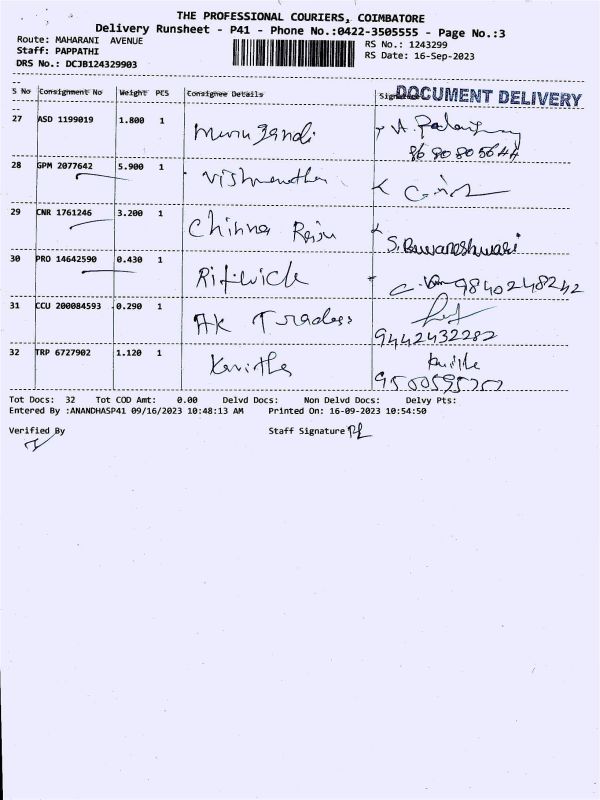 THE PROFESSIONAL COURIERS, COIMBATORE
Delivery Runsheet - P41 - Phone No.:0422-3505555 - Page No.:3
Route: MAHARANI AVENUE
RS No.: 1243299
Staff: PAPPATHI
RS Date: 16-Sep-2023
DRS No.: DCJB124329903
S No Consignment No Weight PCS Consignee Details Signature
DOCUMENT DELIVERY
27 ASD 1199019 1.800 1
28 GPM 2077642 5.900 1
29 CNR 1761246 3.200 1 Chinna Raju
S. Buvaneshwari
30 PRO 14642590 0.430 1 Ritwick 9840248242
31 CCU 200084593 0.290 1 AK Traders
9442432282
32 TRP 6727902 1.120 1 Kavitha
Tot Docs: 32 Tot COD Amt: 0.00 Delvd Docs: Non Delvd Docs: Delvy Pts:
Entered By :ANANDHASP41 09/16/2023 10:48:13 AM Printed On: 16-09-2023 10:54:50
Verified By Staff Signature